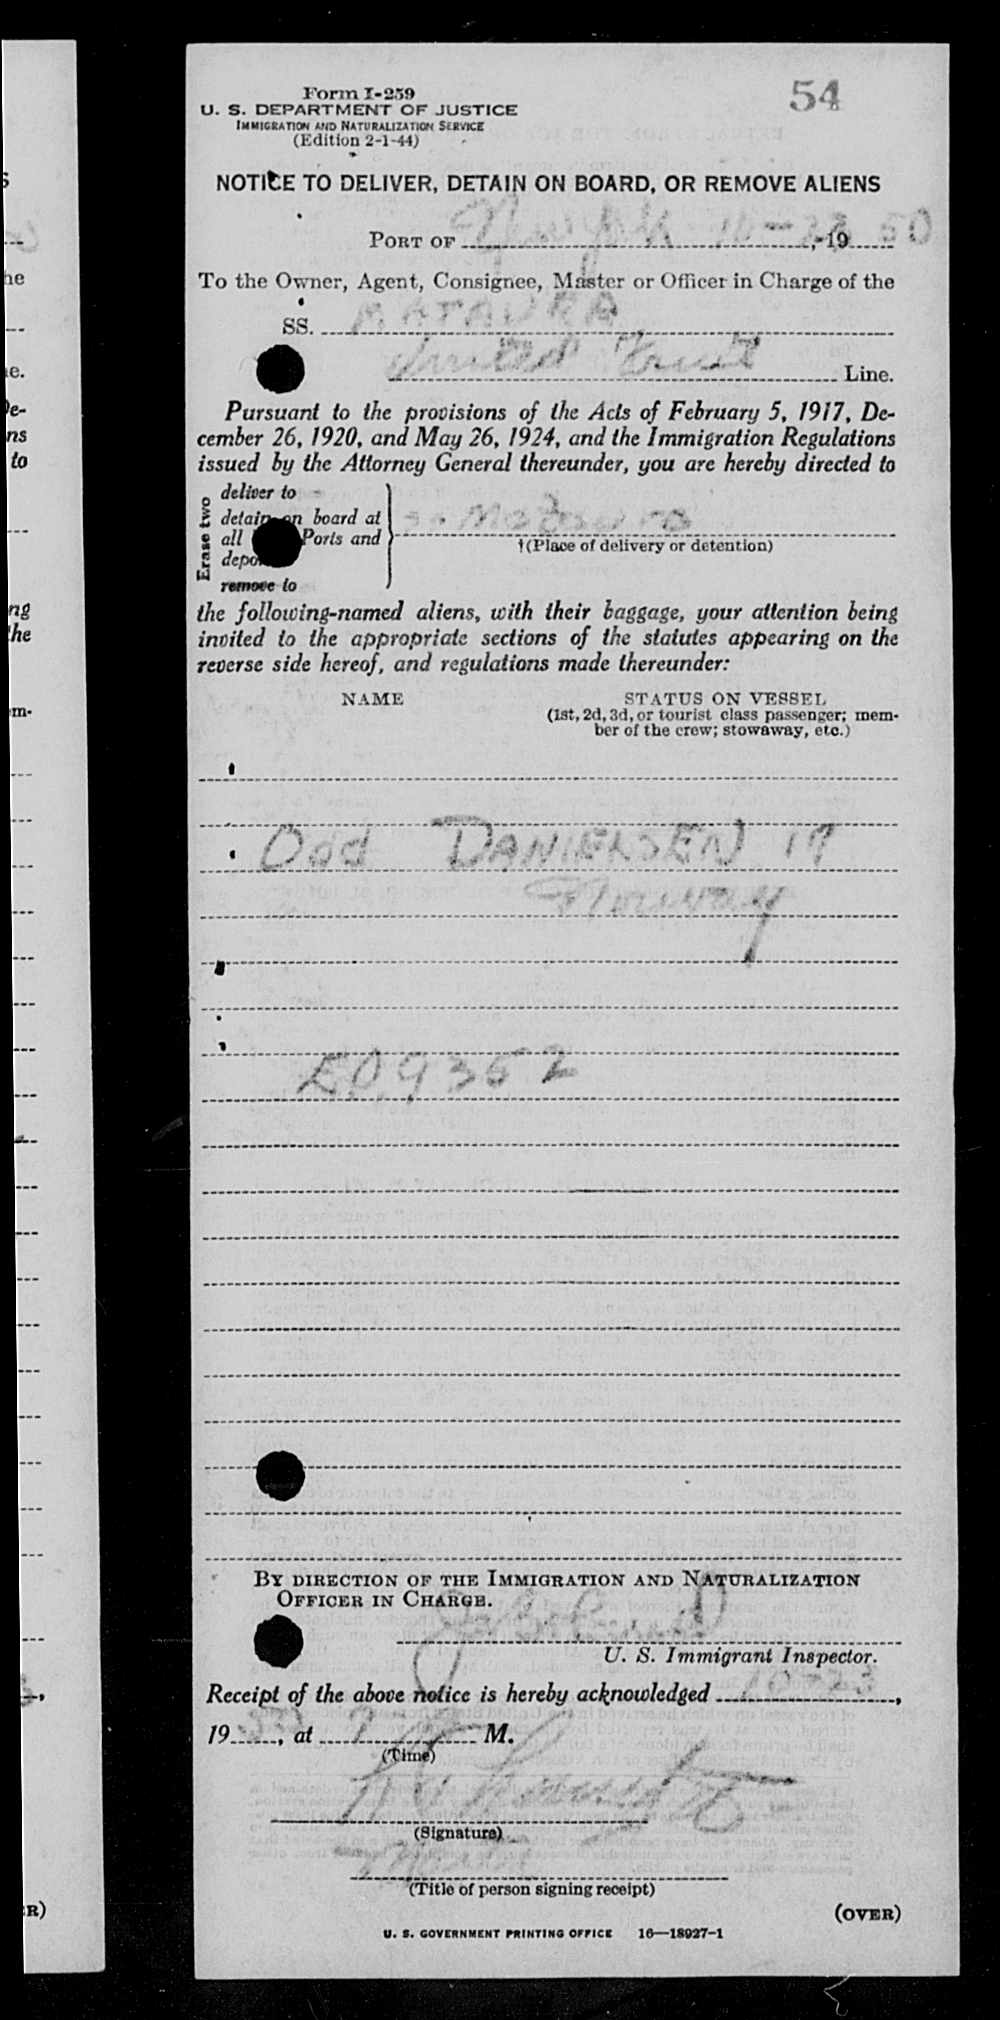 54
Form I-259
U. S. DEPARTMENT OF JUSTICE
IMMIGRATION AND NATURALIZATION SERVICE
(Edition 2-1-44)
NOTICE TO DELIVER, DETAIN ON BOARD, OR REMOVE ALIENS
PORT OF New York, 19 50
To the Owner, Agent, Consignee, Master or Officer in Charge of the
SS. MATAURA
United Fruit Line.
Pursuant to the provisions of the Acts of February 5, 1917, De-
cember 26, 1920, and May 26, 1924, and the Immigration Regulations
issued by the Attorney General thereunder, you are hereby directed to
Erase two
deliver to
detain on board at
all Ports and
depo
remove to
Mataura
†(Place of delivery or detention)
the following-named aliens, with their baggage, your attention being
invited to the appropriate sections of the statutes appearing on the
reverse side hereof, and regulations made thereunder:
NAME STATUS ON VESSEL
(1st, 2d, 3d, or tourist class passenger; mem-
ber of the crew; stowaway, etc.)
Odd DANIELSEN 19
Norway
E09352
BY DIRECTION OF THE IMMIGRATION AND NATURALIZATION
OFFICER IN CHARGE.
U. S. Immigrant Inspector.
Receipt of the above notice is hereby acknowledged 10-23,
19 50, at M.
(Time)
(Signature)
(Title of person signing receipt)
(OVER)
U. S. GOVERNMENT PRINTING OFFICE 16—18927-1